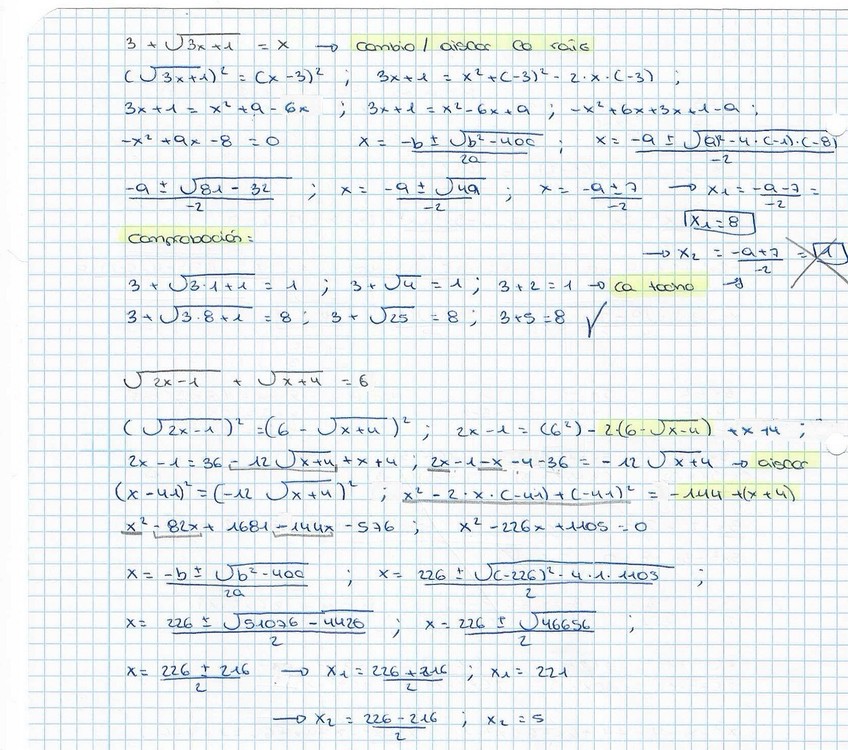 3 + √(3x+1) = x → cambio / aislar la raíz
(√(3x+1))² = (x-3)² ; 3x+1 = x²+(-3)² - 2·x·(-3) ;
3x+1 = x²+9-6x ; 3x+1 = x²-6x+9 ; -x²+6x+3x+1-9 ;
-x²+9x-8 = 0 x = (-b ± √(b²-4ac))/2a ; x = (-9 ± √(9²-4·(-1)·(-8)))/-2
(-9 ± √(81-32))/-2 ; x = (-9 ± √49)/-2 ; x = (-9±7)/-2 → x₁ = (-9-7)/-2 =
x₁ = 8
comprobación: → x₂ = (-9+7)/-2 = 1
3 + √(3·1+1) = 1 ; 3+√4 = 1 ; 3+2 = 1 → la tacho
3 + √(3·8+1) = 8 ; 3 + √25 = 8 ; 3+5 = 8 ✓
√(2x-1) + √(x+4) = 6
(√(2x-1))² = (6 - √(x+4))² ; 2x-1 = (6²) - 2·(6-√(x-4)) + x+4 ;
2x-1 = 36 - 12√(x+4) + x+4 ; 2x-1-x-4-36 = -12√(x+4) → aislar
(x-41)² = (-12 √(x+4))² ; x² - 2·x·(-41) + (-41)² = -144 + (x+4)
x² - 82x + 1681 - 144x - 576 ; x² - 226x + 1105 = 0
x = (-b ± √(b²-4ac))/2a ; x = (226 ± √((-226)²-4·1·1105))/2 ;
x = (226 ± √(51076-4420))/2 ; x = (226 ± √46656)/2 ;
x = (226 ± 216)/2 → x₁ = (226+216)/2 ; x₁ = 221
→ x₂ = (226-216)/2 ; x₂ = 5